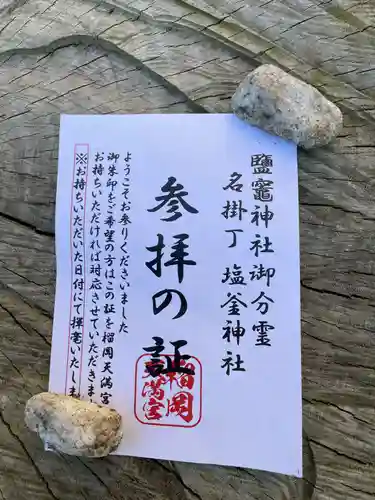 鹽竈神社御分霊
名掛丁 塩釜神社
参拝の証
榴岡
天満宮
ようこそお参りくださいました
御朱印をご希望の方はこの証を榴岡天満宮
お持ちいただければ対応させていただきま
※お持ちいただいた日付にて拝亳いたしま